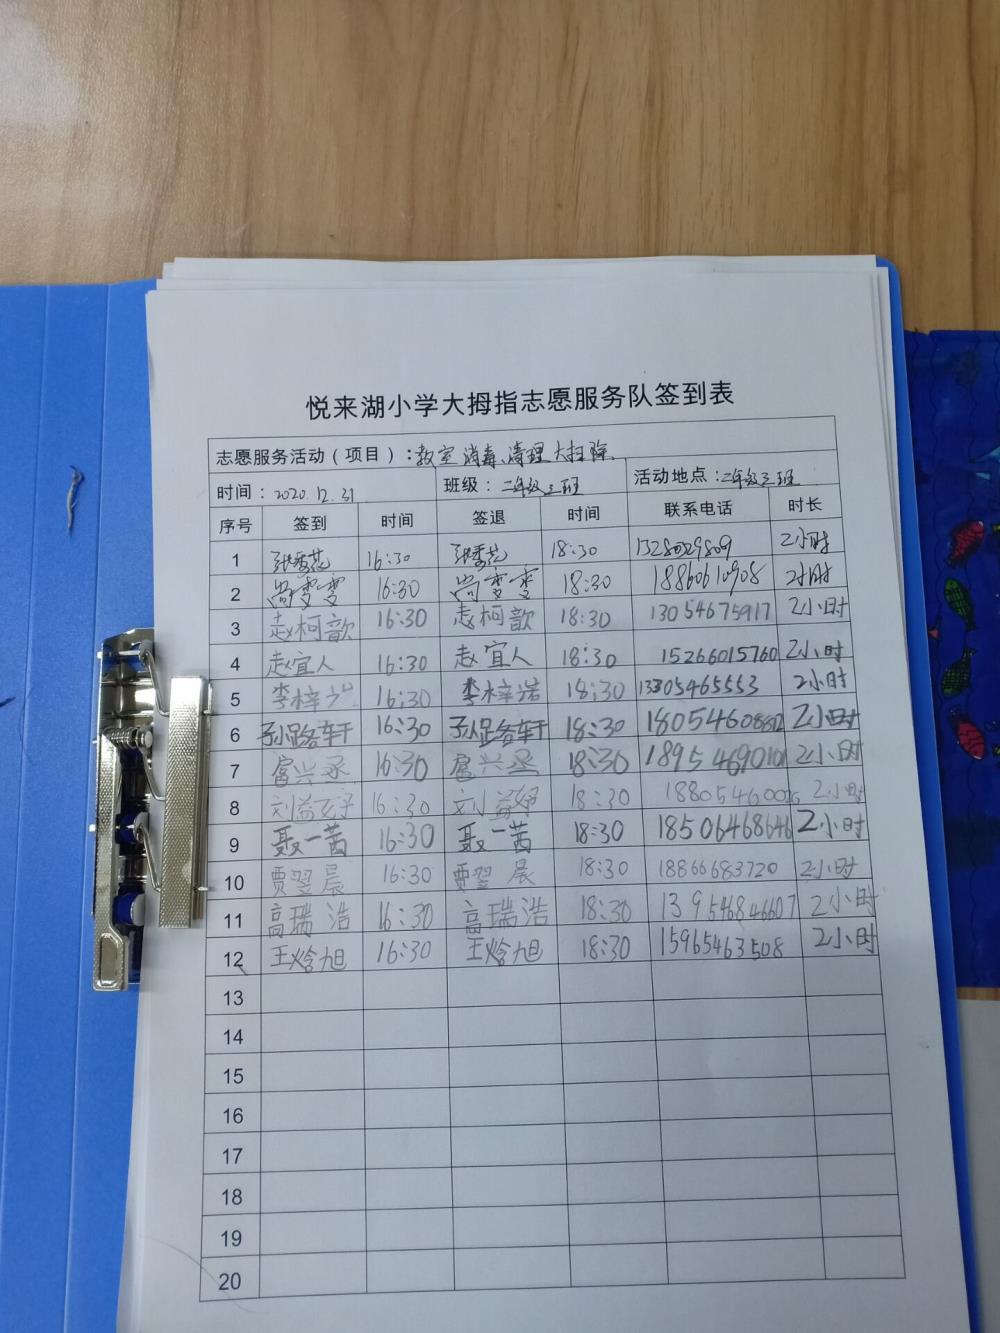 悦来湖小学大拇指志愿服务队签到表
志愿服务活动（项目）：教室消毒、清理大扫除
时间：2020.12.31 班级：二年级三班 活动地点：二年级三班
序号 签到 时间 签退 时间 联系电话 时长
1 16:30 18:30 13280329809 2小时
2 尚雯雯 16:30 尚雯雯 18:30 18860610908 2小时
3 赵柯歆 16:30 赵柯歆 18:30 13054675917 2小时
4 赵宜人 16:30 赵宜人 18:30 15266015760 2小时
5 李梓 16:30 李梓浩 18:30 13305465553 2小时
6 孙路轩 16:30 孙路轩 18:30 2小时
7 16:30 18:30 2小时
8 刘益好 16:30 刘益好 18:30 2小时
9 聂一茜 16:30 聂一茜 18:30 18506468646 2小时
10 贾翌晨 16:30 贾翌晨 18:30 18866683720 2小时
11 高瑞浩 16:30 高瑞浩 18:30 13954684607 2小时
12 王焓旭 16:30 王焓旭 18:30 15965463508 2小时
13
14
15
16
17
18
19
20